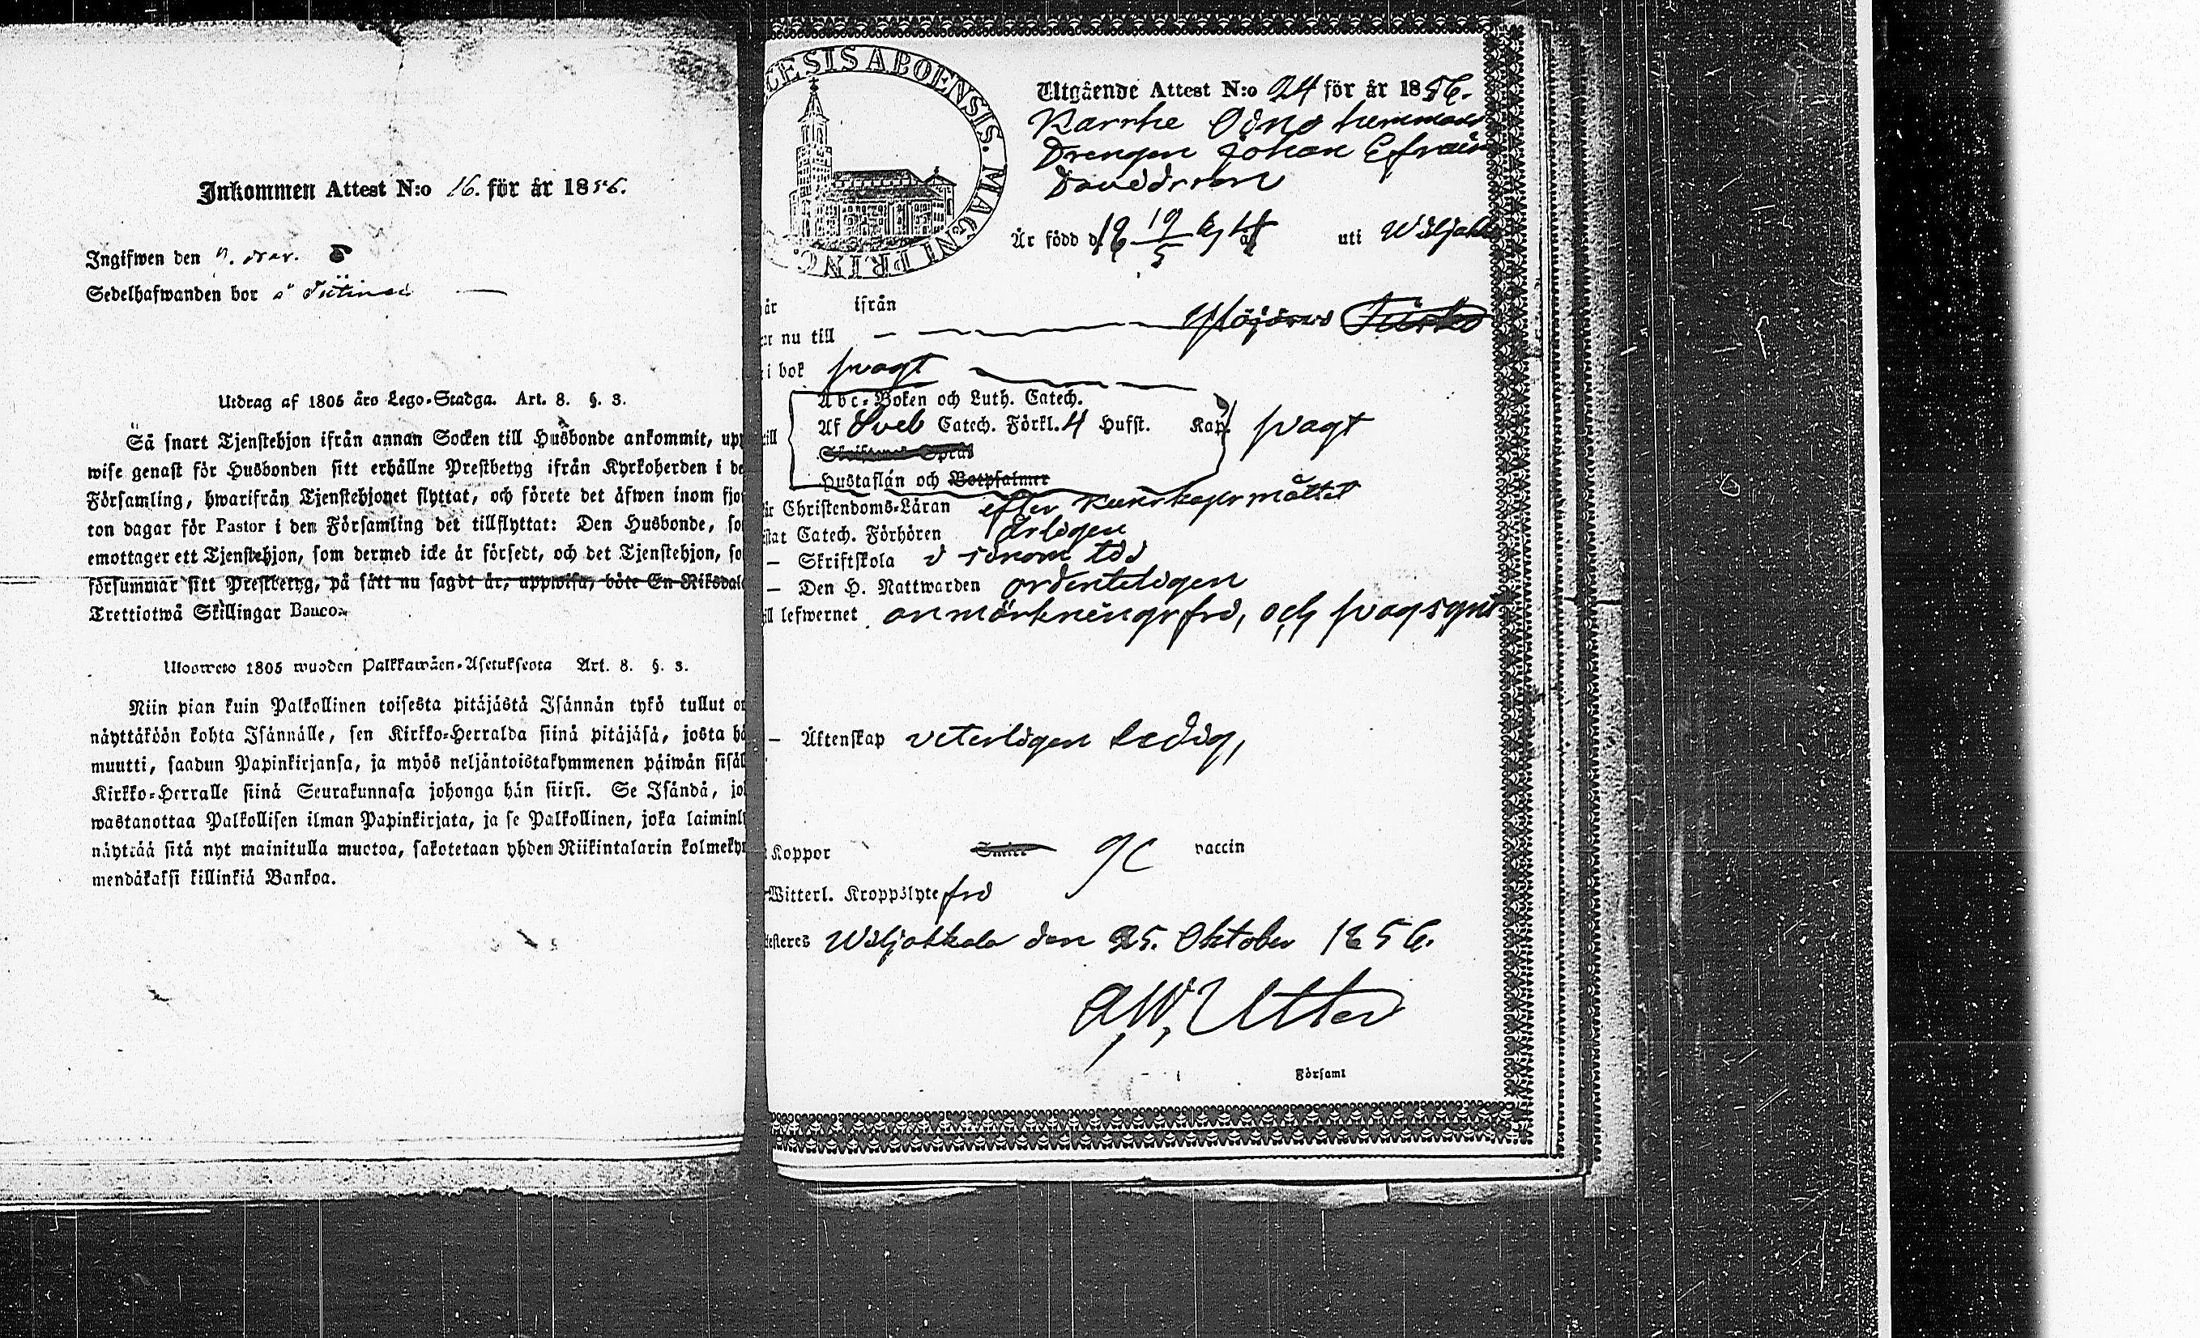 Inkommen Attest N:o 16. för år 1856.
Ingifwen den 9. nov.
Sedelhafwanden bor i
Utdrag af 1805 års Lego-Stadga. Art. 8. §. 3.
Så snart Tjenstehjon ifrån annan Socken till Husbonde ankommit, upp
wise genast för Husbonden sitt erhållne Prestbetyg ifrån Kyrkoherden i de
Församling, hwarifrån Tjenstehjonet flyttat, och förete det äfwen inom fjor
ton dagar för Pastor i den Församling det tillflyttat: Den Husbonde, so
emottager ett Tjenstehjon, som dermed icke är försedt, och det Tjenstehjon, so
försummar sitt Prestbetyg, på sätt nu sagdt är, uppwisa, böte En Riksdal
Trettiotwå Skillingar Banco.
Ulosweto 1805 wuoden Palkkawäen-Asetuksesta Art. 8. §. 3.
Niin pian kuin Palkollinen toisesta pitäjästä Isännän tykö tullut on
näyttäköön kohta Isännälle, sen Kirkko-Herralda siinä pitäjäsä, josta hä
muutti, saadun Papinkirjansa, ja myös neljäntoistakymmenen päiwän sisäl
Kirkko-Herralle siinä Seurakunnasa johonga hän siirsi. Se Isändä, jo
wastanottaa Palkollisen ilman Papinkirjata, ja se Palkollinen, joka laiminly
näyttää sitä nyt mainitulla muotoa, sakotetaan yhden Riikintalarin kolmeky
mendäkaksi killinkiä Bankoa.
CESIS ABOENSIS. MAGNI PRINC.
Utgående Attest N:o 24 för år 1856.
Karrhe Eino hemmans
Drengen Johan Efraim
Davidsson
Är född d. 18 19/5 41 år uti Wiljakk
är ifrån
er nu till
i bok svagt
Abc-Boken och Luth. Catech.
till Af Sveb Catech. Förkl. 4 Hufst. Kap. svagt
Skriftenes Språk
Hustaflan och Botpsalmer
är Christendoms-Läran efter kunskapsmåttet
stat Catech. Förhören årligen
– Skriftskola i sinom tid
– Den H. Nattwarden ordenteligen
ill lefwernet anmärkningsfri, och svagsynt
– Äktenskap veterligen ledig,
Koppor Smitt gc vaccin
Witterl. Kroppslyte fri
testeres Wiljakkala den 25. Oktober 1856.
A. W. Utter
Församl